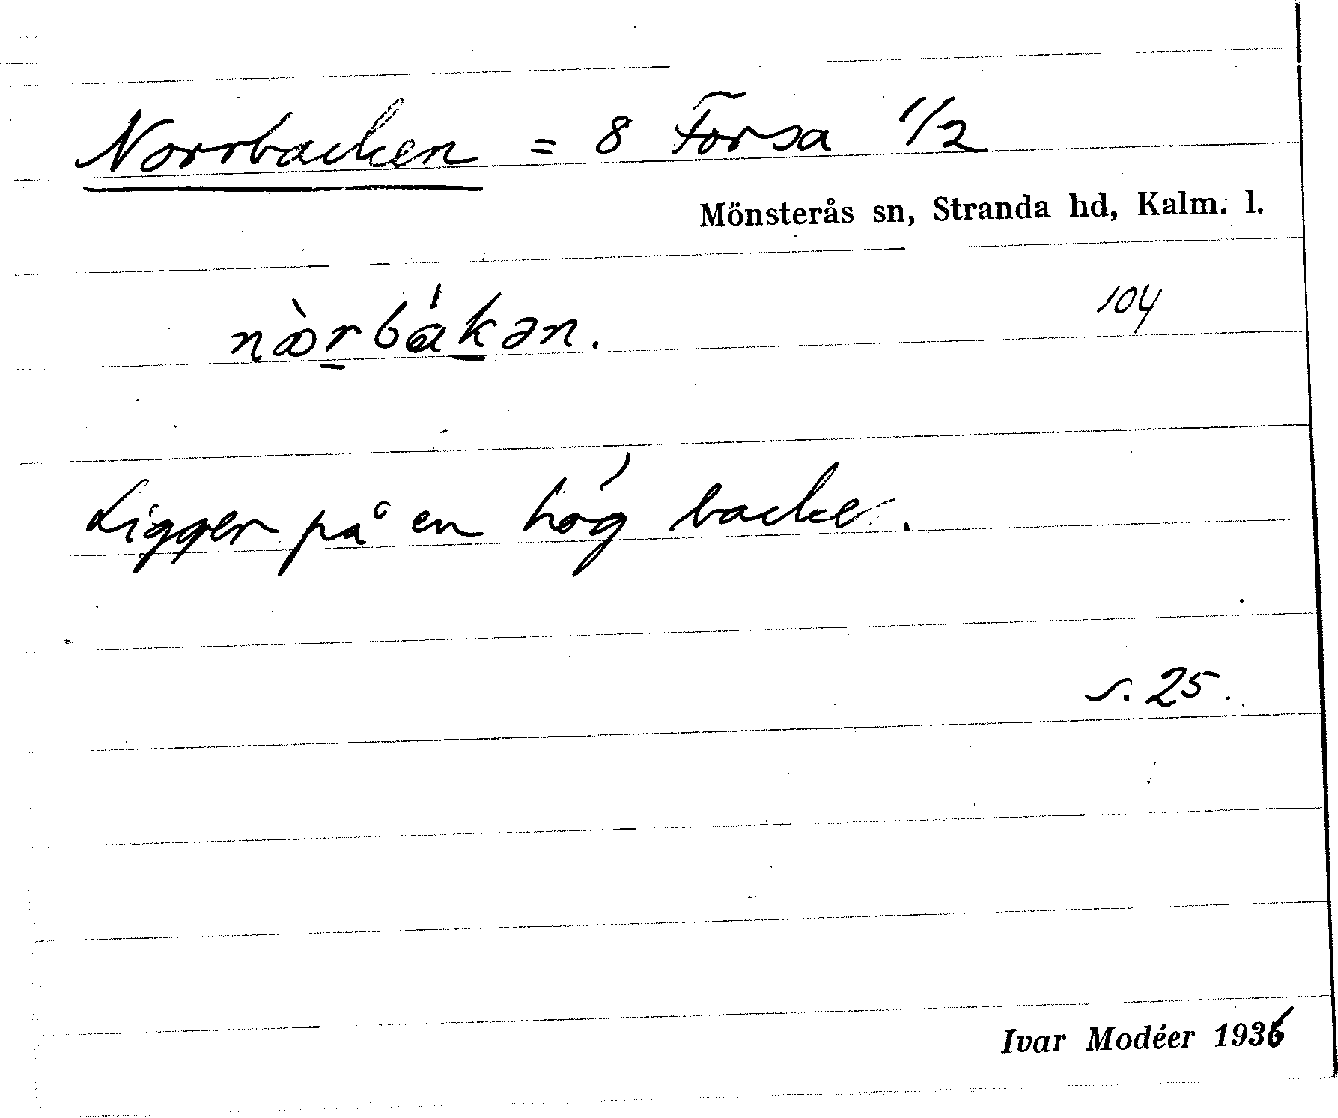 Norrbacken = 8 Forsa 1/2
Mönsterås sn, Stranda hd, Kalm. l.
nòrbákən.
104
Ligger på en hög backe.
s. 25.
Ivar Modéer 1936